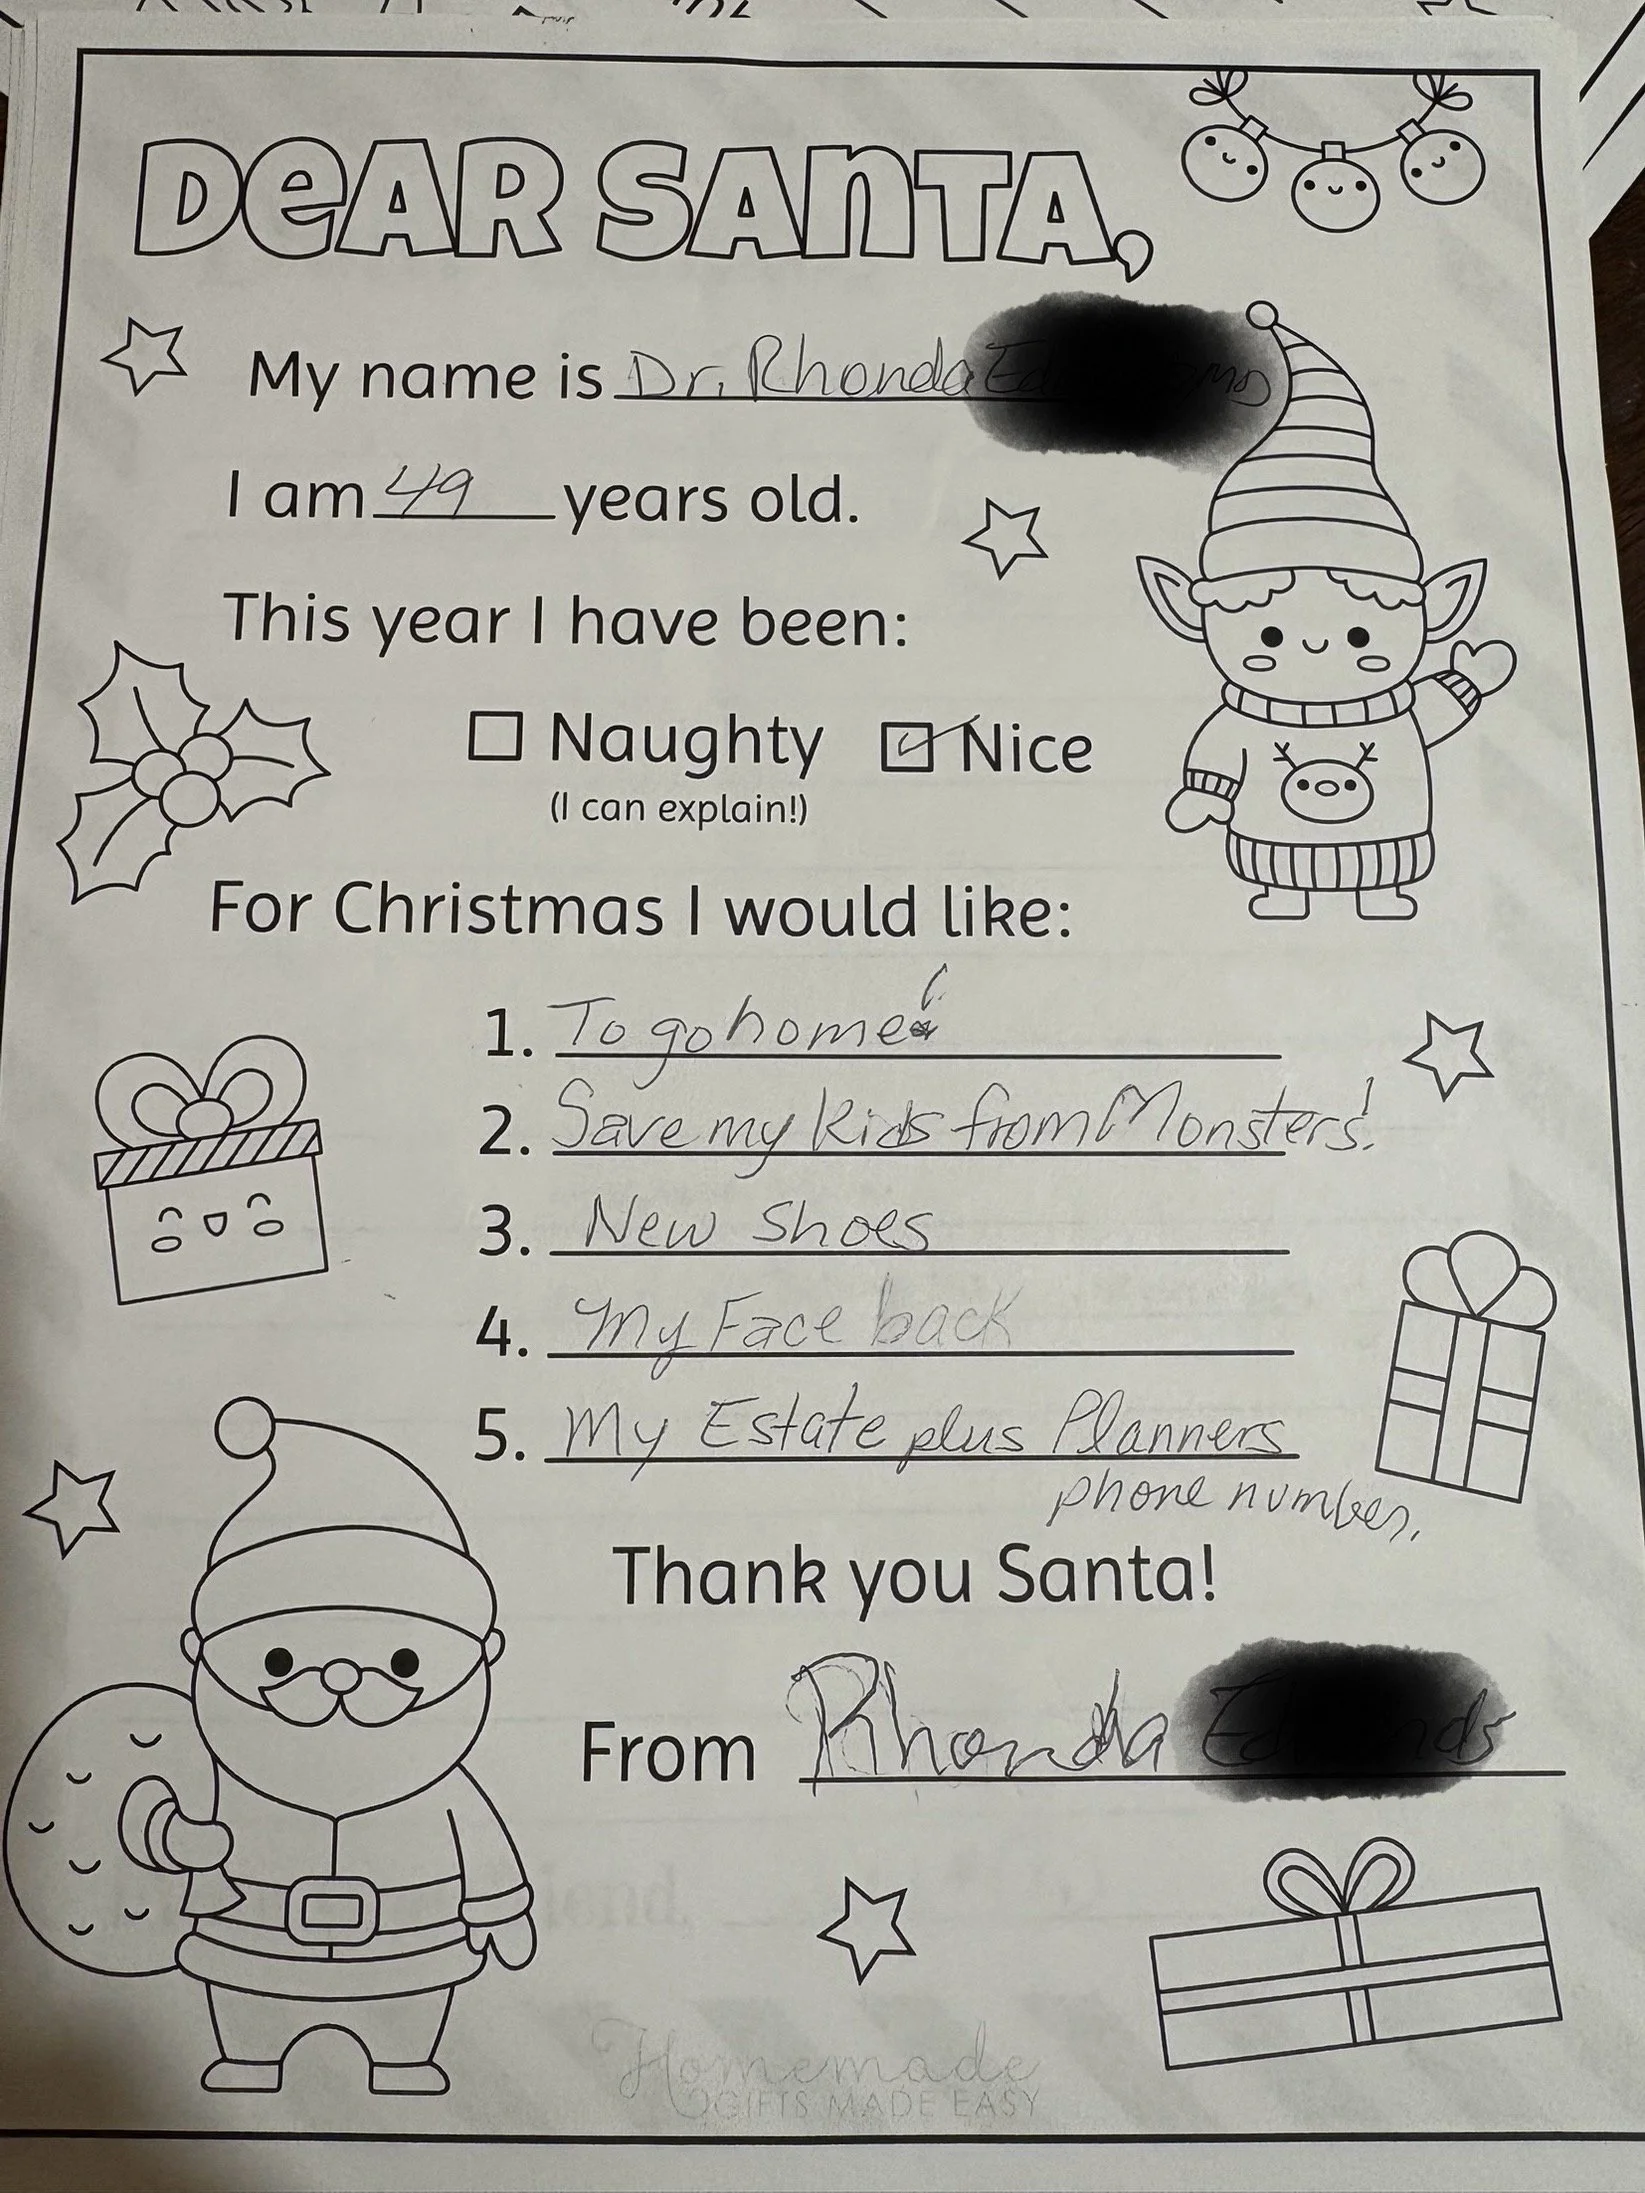 DEAR SANTA,
My name is Dr. Rhonda
I am 49 years old.
This year I have been:
Naughty Nice
(I can explain!)
For Christmas I would like:
1. To go home!
2. Save my kids from Monsters!
3. New Shoes
4. My Face back
5. My Estate plus Planners
phone number.
Thank you Santa!
From Rhonda
Homemade
GIFTS MADE EASY